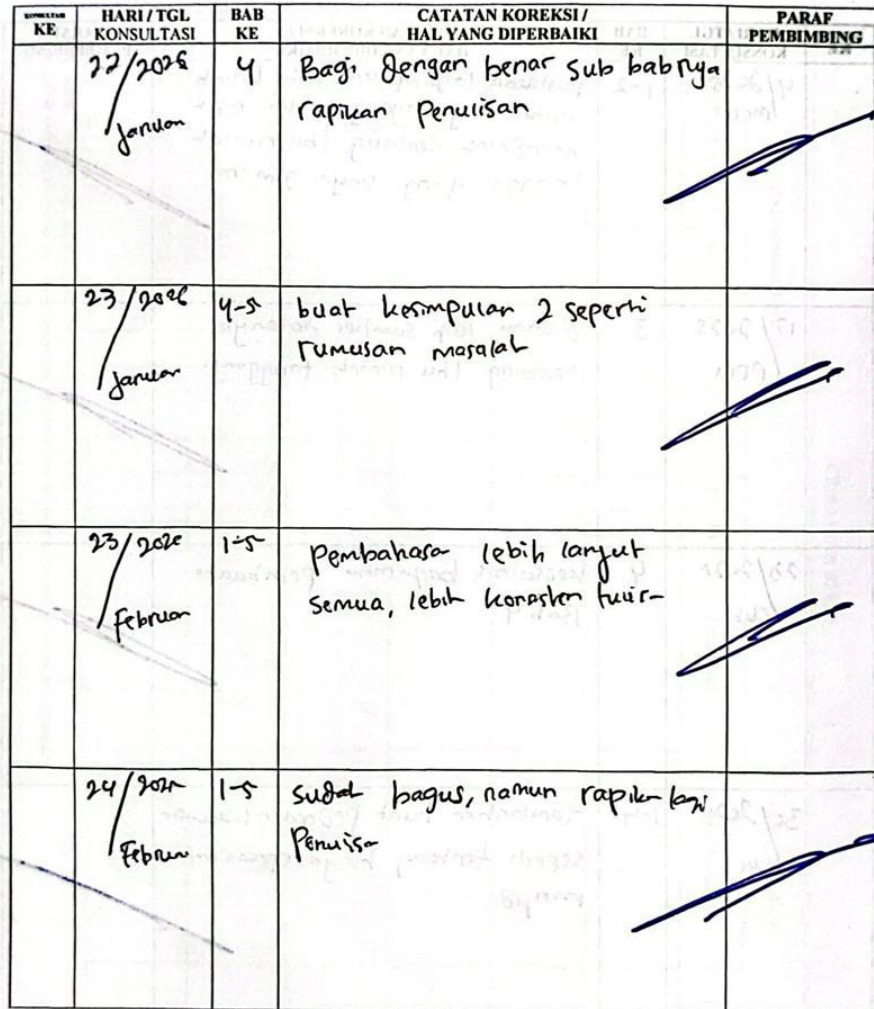 KONSULTASI KE
HARI / TGL KONSULTASI
BAB KE
CATATAN KOREKSI / HAL YANG DIPERBAIKI
PARAF PEMBIMBING
22/2026 Januari
4
Bagi dengan benar sub babnya
rapikan penulisan
23/2026 Januari
4-5
buat kesimpulan 2 seperti
rumusan masalah
23/2026 Februari
1-5
pembahasan lebih lanjut
semua, lebih konsisten tulis
24/2026 Februari
1-5
sudah bagus, namun rapikan lagi
penulisan